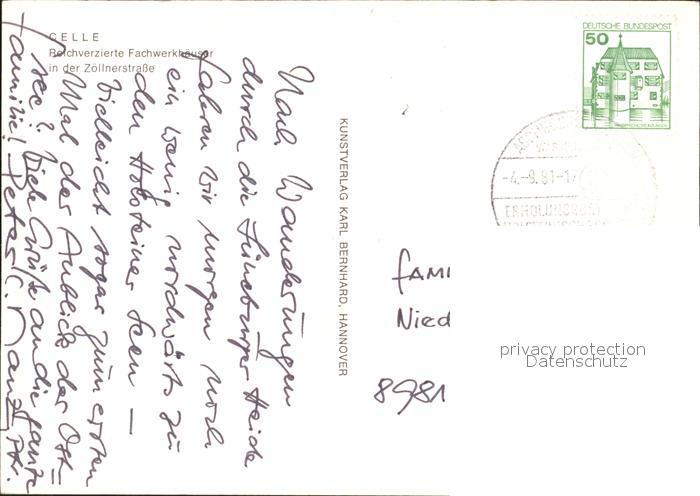 CELLE
Reichverzierte Fachwerkhäuser
in der Zöllnerstraße
Nach Wanderungen
durch die Lüneburger Heide
fahren wir morgen noch
ein wenig nordwärts zu
den Holsteiner Seen –
Vielleicht sogar zum ersten
Mal der Anblick der Ost=
see? Viele Grüße an die ganze
Familie! Peter
KUNSTVERLAG KARL BERNHARD, HANNOVER
DEUTSCHE BUNDESPOST
50
-4.-9.81-17
ERHOLUNGSORT
FAMI
Nied
8981
privacy protection
Datenschutz